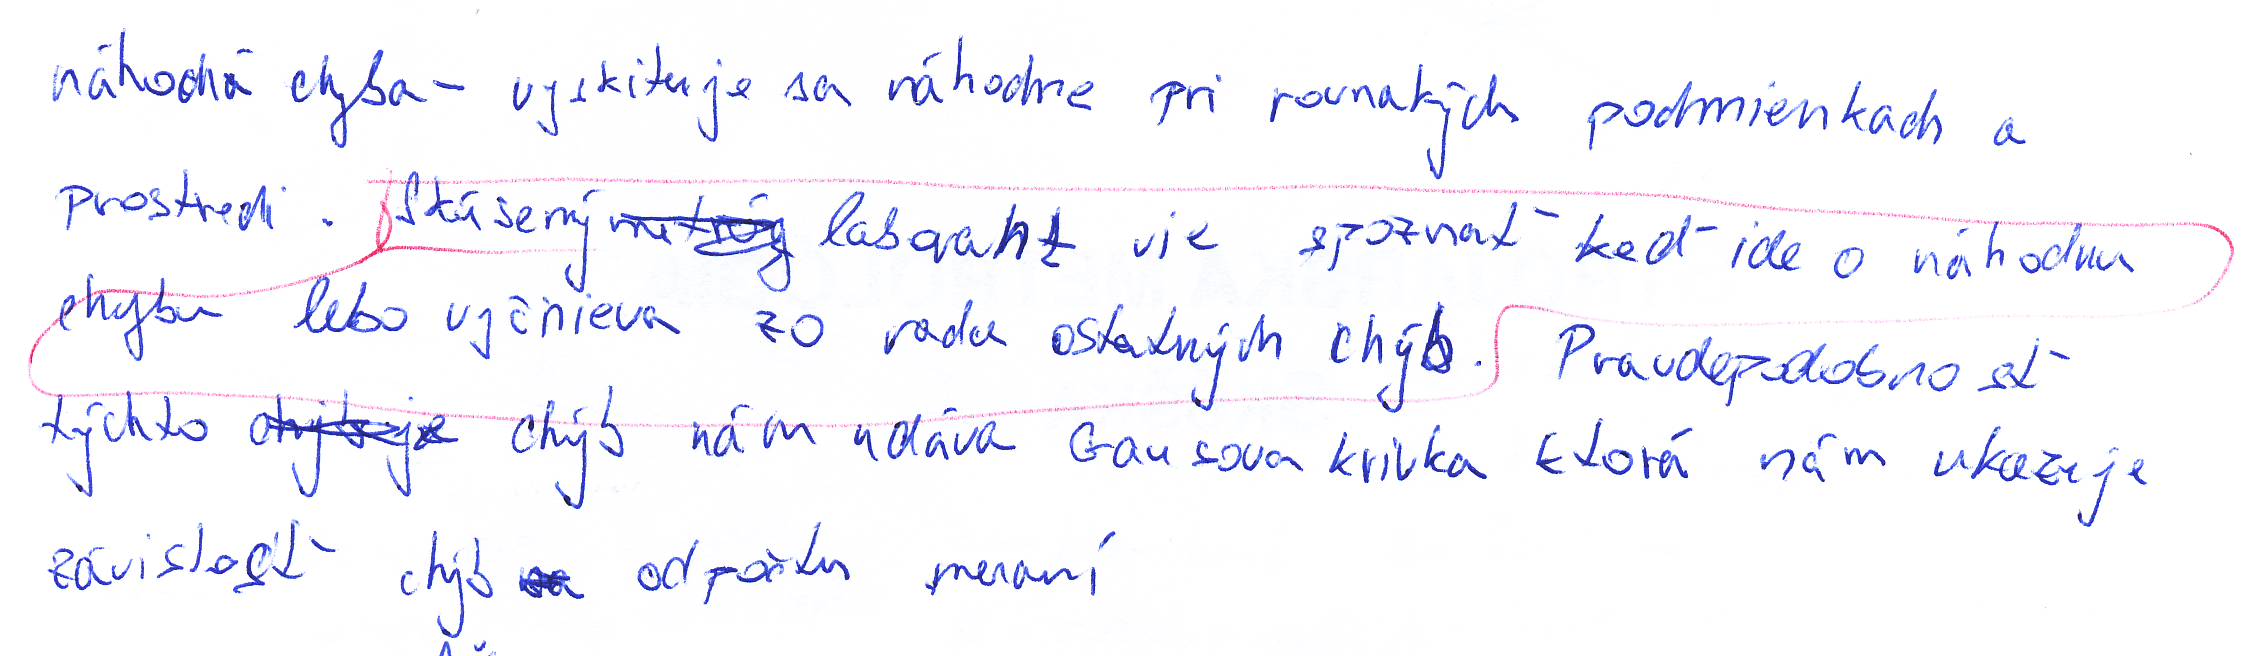 náhodná chyba – vyskituje sa náhodne pri rovnakých podmienkach a
prostredi. Skúsený laborant vie spoznať keď ide o náhodnu
chybu lebo vyčnieva zo rada ostatných chýb. Pravdepodobnosť
týchto chýb nám udáva Gausova krivka ktorá nám ukazuje
závislosť chýb od počtu meraní